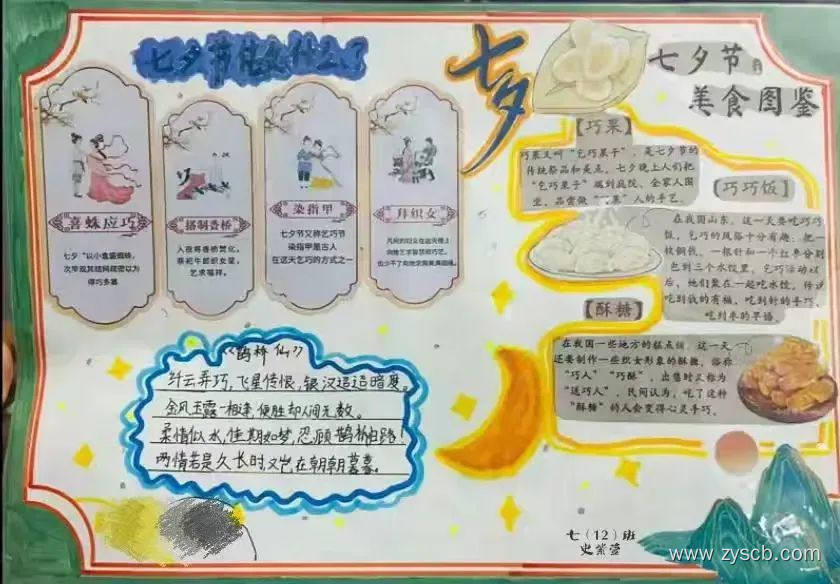 七夕节什么
七夕
七夕节
美食图鉴
喜蛛应巧
七夕"以小盒盛蜘蛛，
次早观其结网疏密以为
得巧多寡
搭制香桥
入夜将香桥焚化，
祭祀牛郎织女星，
乞求福祥。
染指甲
七夕节又称乞巧节
染指甲是古人
在这天乞巧的方式之一
拜织女
凡间的妇女在这天晚上
向她乞求智慧和巧艺，
也少不了向她求赐美满姻缘。
【巧果】
巧果又叫"乞巧果子"，是七夕节的
传统祭品和美点，七夕晚上人们把
"乞巧果子"端到庭院，全家人围
坐，品尝做"巧果"人的手艺。
【巧巧饭】
在我国山东，这一天要吃巧巧
饭，乞巧的风俗十分有趣：把一
枚铜钱、一根针和一个红枣分别
包到三个水饺里，乞巧活动以
后，她们聚在一起吃水饺，传说
吃到钱的有福，吃到针的手巧，
吃到枣的早婚。
【酥糖】
在我国一些地方的糕点铺，这一天
还要制作一些织女形象的酥糖，俗称
"巧人""巧酥"，出售时又称为
"送巧人"，民间认为，吃了这种
"酥糖"的人会变得心灵手巧。
《鹊桥仙》
纤云弄巧，飞星传恨，银汉迢迢暗度。
金风玉露一相逢，便胜却人间无数。
柔情似水，佳期如梦，忍顾鹊桥归路！
两情若是久长时，又岂在朝朝暮暮。
七（12）班
史紫萱
www.zyscb.com